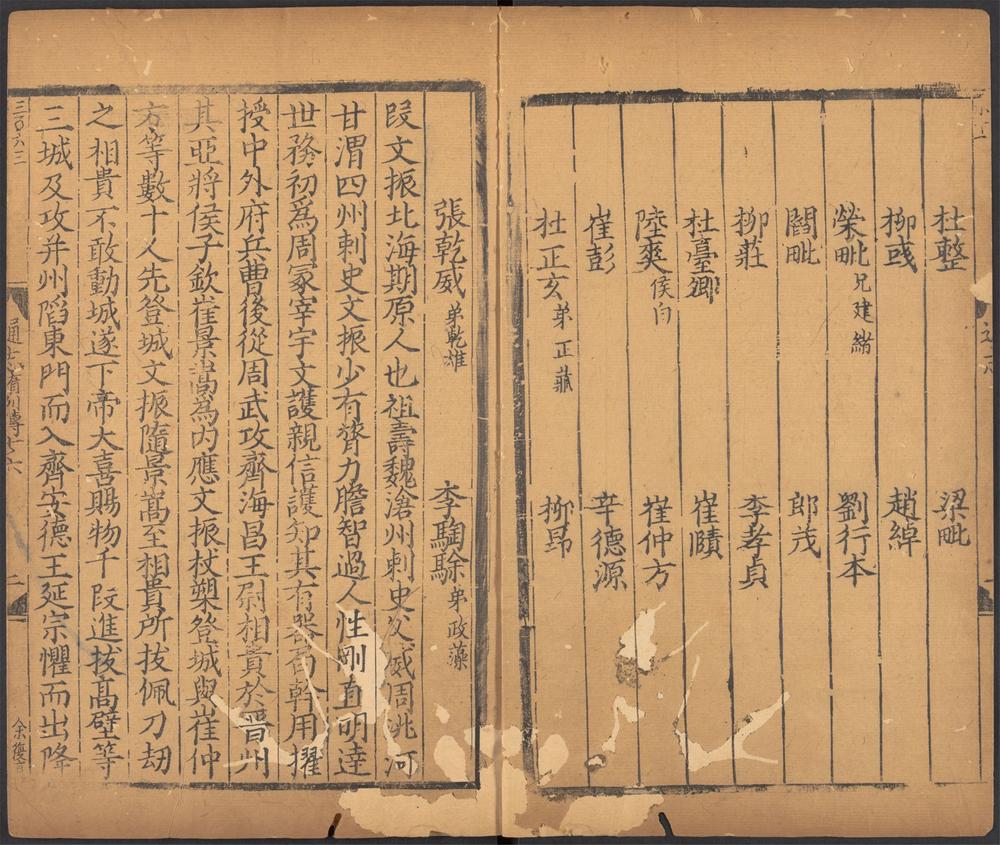 杜整 梁毗
柳彧 趙綽
榮毗兄建緒 劉行本
閻毗 郎茂
柳莊 李孝貞
杜臺卿 崔賾
陸爽侯白 崔仲方
崔彭 辛德源
杜正玄弟正藏 柳昂
張乾威弟乾雄 李騊駼弟政藻
段文振北海期原人也祖壽魏滄州刺史父威周洮河
甘渭四州刺史文振少有膂力膽智過人性剛直明達
世務初為周冢宰宇文護親信護知其有器局幹用擢
授中外府兵曹後從周武攻齊海昌王尉相貴於晉州
其亞將侯子欽崔景嵩為内應文振杖槊登城與崔仲
方等數十人先登城文振隨景嵩至相貴所拔佩刀劫
之相貴不敢動城遂下帝大喜賜物千段進拔高壁等
三城及攻并州陷東門而入齊安德王延宗懼而出降
三〇六三 列傳七十六 二